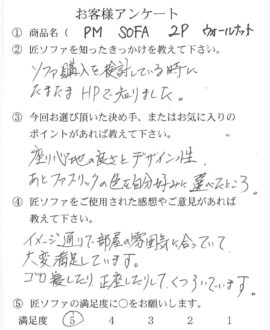 お客様アンケート
① 商品名 ( PM SOFA 2P ウォールナット
② 匠ソファを知ったきっかけを教えて下さい。
ソファ購入を検討している時に
たまたまHPで知りました。
③ 今回お選び頂いた決め手、またはお気に入りの
ポイントがあれば教えて下さい。
座り心地の良さとデザイン性。
あとファブリックの色を自分好みに選べたところ。
④ 匠ソファをご使用された感想やご意見があれば
教えて下さい。
イメージ通りで部屋の雰囲気に合っていて
大変満足しています。
ゴロ寝したり正座したりして、くつろいでいます。
⑤ 匠ソファの満足度に○をお願いします。
満足度 5 4 3 2 1